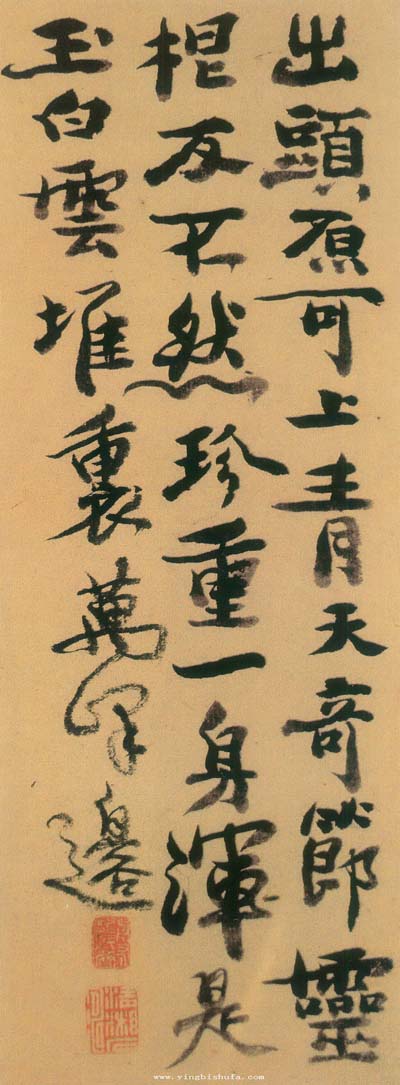 出頭原可上青天奇節靈
根反不然珍重一身渾是
玉白雲堆裏萬峯邊
www.yingbishufa.com